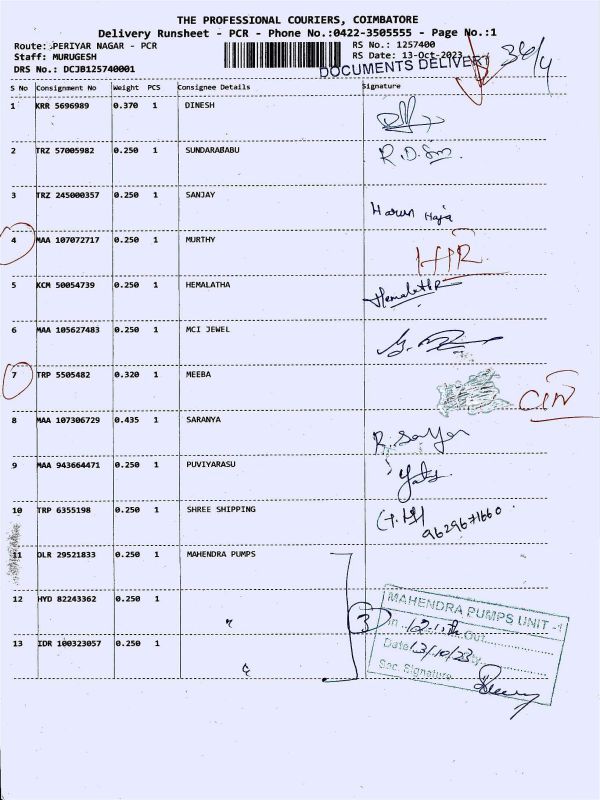 THE PROFESSIONAL COURIERS, COIMBATORE
Delivery Runsheet - PCR - Phone No.:0422-3505555 - Page No.:1
Route: PERIYAR NAGAR - PCR RS No.: 1257400
Staff: MURUGESH RS Date: 13-Oct-2023
DRS No.: DCJB125740001 DOCUMENTS DELIVERY 36/4
S No Consignment No Weight PCS Consignee Details Signature
1 KRR 5696989 0.370 1 DINESH
2 TRZ 57005982 0.250 1 SUNDARABABU R.D.Sm
3 TRZ 245000357 0.250 1 SANJAY Harun Haja
4 MAA 107072717 0.250 1 MURTHY
5 KCM 50054739 0.250 1 HEMALATHA Hemalatha
6 MAA 105627483 0.250 1 MCI JEWEL
7 TRP 5505482 0.320 1 MEEBA
8 MAA 107306729 0.435 1 SARANYA
9 MAA 943664471 0.250 1 PUVIYARASU
10 TRP 6355198 0.250 1 SHREE SHIPPING 9629671660
11 DLR 29521833 0.250 1 MAHENDRA PUMPS
12 HYD 82243362 0.250 1 "
13 IDR 100323057 0.250 1
3
MAHENDRA PUMPS UNIT -1
In Out
Date 13/10/23
Sec. Signature